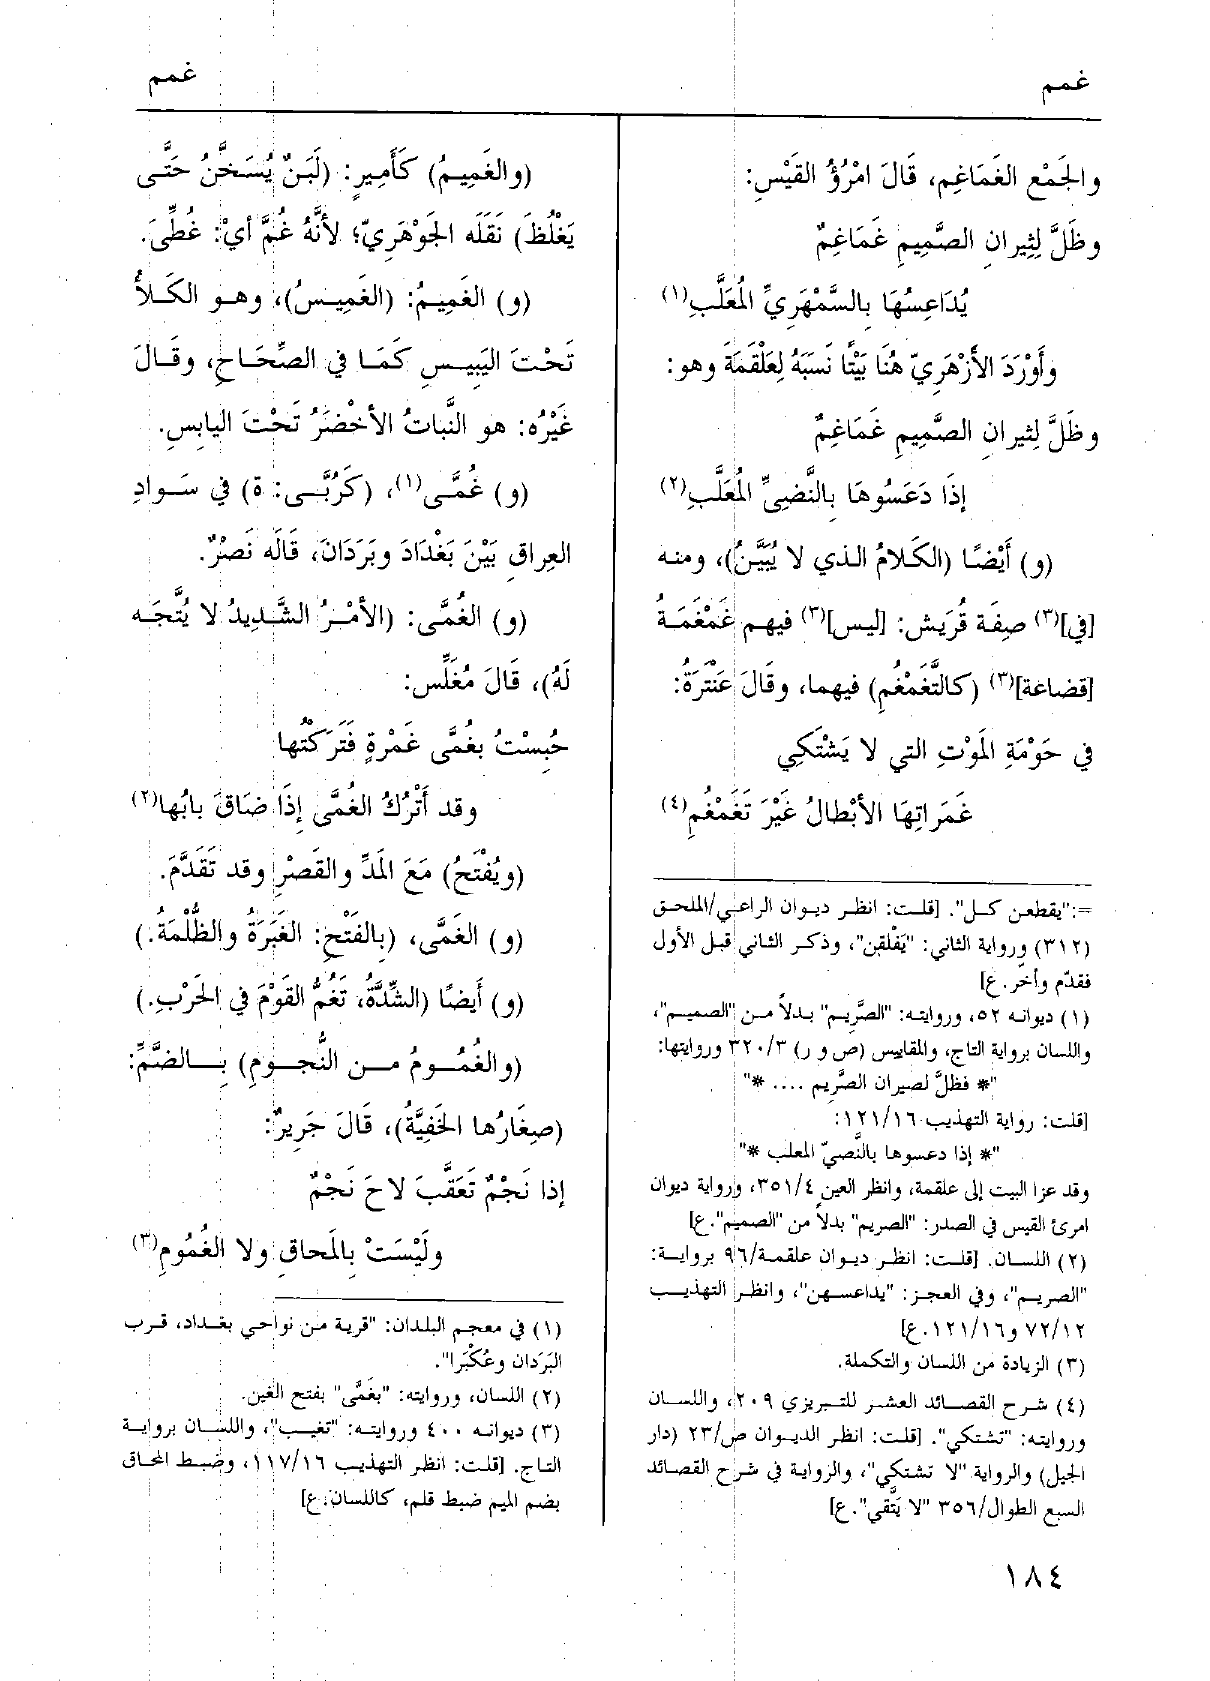 غمم
غمم
والجَمْع الغَمَاغِم، قَالَ امْرُؤُ القَيْسِ:
وظَلَّ لِثِيرانِ الصَّمِيمِ غَمَاغِمٌ
يُدَاعِسُهَا بِالسَّمْهَرِيِّ المُعَلَّبِ(١)
وأَوْرَدَ الأَزْهَرِيّ هُنَا بَيْتًا نَسَبَهُ لِعَلْقَمَةَ وهو:
وظَلَّ لِثيرانِ الصَّمِيمِ غَمَاغِمٌ
إذَا دَعَسُوهَا بِالنَّضِيِّ المُعَلَّبِ(٢)
(و) أَيْضًا (الكَلامُ الذي لا يُبَيَّنُ)، ومنه
[في](٣) صِفَة قُرَيش: [ليس](٣) فيهم غَمْغَمَةُ
[قضاعة](٣) (كالتَّغَمْغُمِ) فيهما، وقَالَ عَنْتَرَةُ:
في حَوْمَةِ المَوْتِ التي لا يَشْتَكِي
غَمَرَاتِهَا الأَبْطالُ غَيْرَ تَغَمْغُمِ(٤)
=:"يقطعن كل". [قلت: انظر ديوان الراعي/الملحق
(٣١٢) ورواية الثاني: "يَفْلقن"، وذكر الثاني قبل الأول
فقدّم وأخّر. ع]
(١) ديوانه ٥٢، وروايته: "الصَّرِيم" بدلاً من "الصميم"،
واللسان برواية التاج، والمقاييس (ص و ر) ٣٢٠/٣ وروايتها:
"* فظلَّ لصيران الصَّرِيم .... *"
[قلت: رواية التهذيب ١٢١/١٦:
"* إذا دعسوها بالنَّصيّ المعلب *"
وقد عزا البيت إلى علقمة، وانظر العين ٣٥١/٤، ورواية ديوان
امرئ القيس في الصدر: "الصريم" بدلاً من "الصميم". ع]
(٢) اللسان. [قلت: انظر ديوان علقمة/٩٦ برواية:
"الصريم"، وفي العجز: "يداعسهن"، وانظر التهذيب
٧٢/١٢ و١٢١/١٦. ع]
(٣) الزيادة من اللسان والتكملة.
(٤) شرح القصائد العشر للتبريزي ٢٠٩، واللسان
وروايته: "تشتكي". [قلت: انظر الديوان ص/٢٣ (دار
الجيل) والرواية "لا تشتكي"، والرواية في شرح القصائد
السبع الطوال/٣٥٦ "لا يَتَّقي". ع]
(والغَمِيمُ) كَأَمِيرٍ: (لَبَنٌ يُسَخَّنُ حَتَّى
يَغْلُظَ) نَقَلَه الجَوْهَرِيّ؛ لأنَّهُ غُمَّ أيْ: غُطِّيَ.
(و) الغَمِيمُ: (الغَمِيسُ)، وهو الكَلأُ
تَحْتَ اليَبِيسِ كَمَا في الصِّحَاحِ، وقَالَ
غَيْرُه: هو النَّباتُ الأخْضَرُ تَحْتَ اليابِسِ.
(و) غُمَّى(١)، (كَرُبَّى: ة) في سَوادِ
العِراقِ بَيْنَ بَغْدَادَ وبَرَدَانَ، قَالَه نَصْرٌ.
(و) الغُمَّى: (الأمْرُ الشَّدِيدُ لا يُتَّجَه
لَهُ)، قَالَ مُغَلِّس:
حُبِسْتُ بِغُمَّى غَمْرَةٍ فَتَرَكْتُها
وقد أَتْرُكُ الغُمَّى إذَا ضَاقَ بابُها(٢)
(ويُفْتَحُ) مَعَ المَدِّ والقَصْرِ وقد تَقَدَّمَ.
(و) الغَمَّى، (بِالفَتْحِ: الغَبَرَةُ والظُّلْمَةُ.)
(و) أَيضًا (الشِّدَّةُ، تَغُمُّ القَوْمَ في الحَرْبِ.)
(والغُمُومُ من النُّجومِ) بِالضَّمِّ:
(صِغَارُها الخَفِيَّةُ)، قَالَ جَرِيرٌ:
إذا نَجْمٌ تَعَقَّبَ لاحَ نَجْمٌ
ولَيْسَتْ بِالمَحاقِ ولا الغُمُومِ(٣)
(١) في معجم البلدان: "قرية من نواحي بغداد، قرب
البَرَدان وعُكْبَرا".
(٢) اللسان، وروايته: "بغَمَّى" بفتح الغين.
(٣) ديوانه ٤٠٠ وروايته: "تغيب"، واللسان برواية
التاج. [قلت: انظر التهذيب ١١٧/١٦، وضبط المحاق
بضم الميم ضبط قلم، كاللسان. ع]
١٨٤